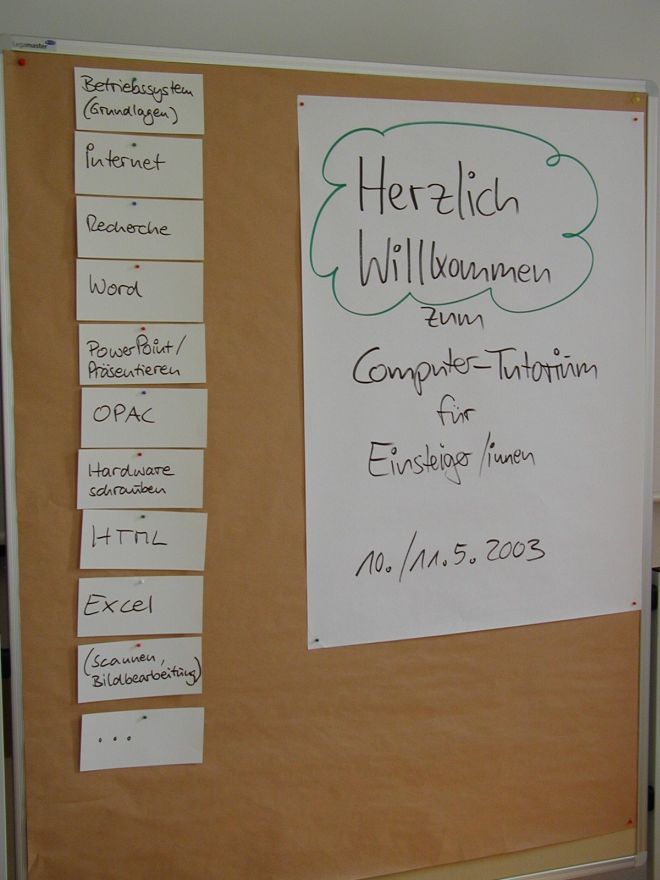 Legamaster
Betriebssystem
(Grundlagen)
Internet
Recherche
Word
PowerPoint/
Präsentieren
OPAC
Hardware
schrauben
HTML
Excel
(Scannen,
Bildbearbeitung)
...
Herzlich
Willkommen
zum
Computer-Tutorium
für
Einsteiger/innen
10./11.5.2003